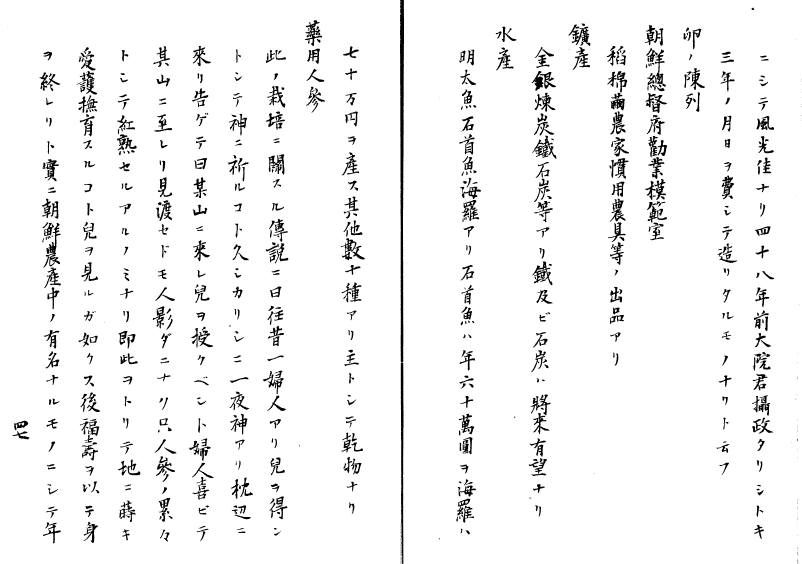 ニシテ風光佳ナリ四十八年前大院君攝政タリシトキ
三年ノ月日ヲ費シテ造リタルモノナリト云フ
卵ノ陳列
朝鮮總督府勸業模範室
稻棉繭農家慣用農具等ノ出品アリ
鑛產
金銀煉炭鐵石炭等アリ鐵及ビ石炭ハ將來有望ナリ
水產
明太魚石首魚海羅アリ石首魚ハ年六十萬圓ヲ海羅ハ
七十万円ヲ產ス其他數十種アリ主トシテ乾物ナリ
藥用人參
此ノ栽培ニ關スル傳說ニ曰往昔一婦人アリ兒ヲ得ン
トシテ神ニ祈ルコト久シカリシニ一夜神アリ枕辺ニ
來リ告ゲテ曰某山ニ來レ兒ヲ授クベシト婦人喜ビテ
其山ニ至レリ見渡セドモ人影ダニナリ只人參ノ累々
トシテ紅熟セルアルノミナリ即此ヲトリテ地ニ蒔キ
愛護撫育スルコト兒ヲ見ルガ如クス後福壽ヲ以テ身
ヲ終レリト實ニ朝鮮農產中ノ有名ナルモノニシテ年
四七